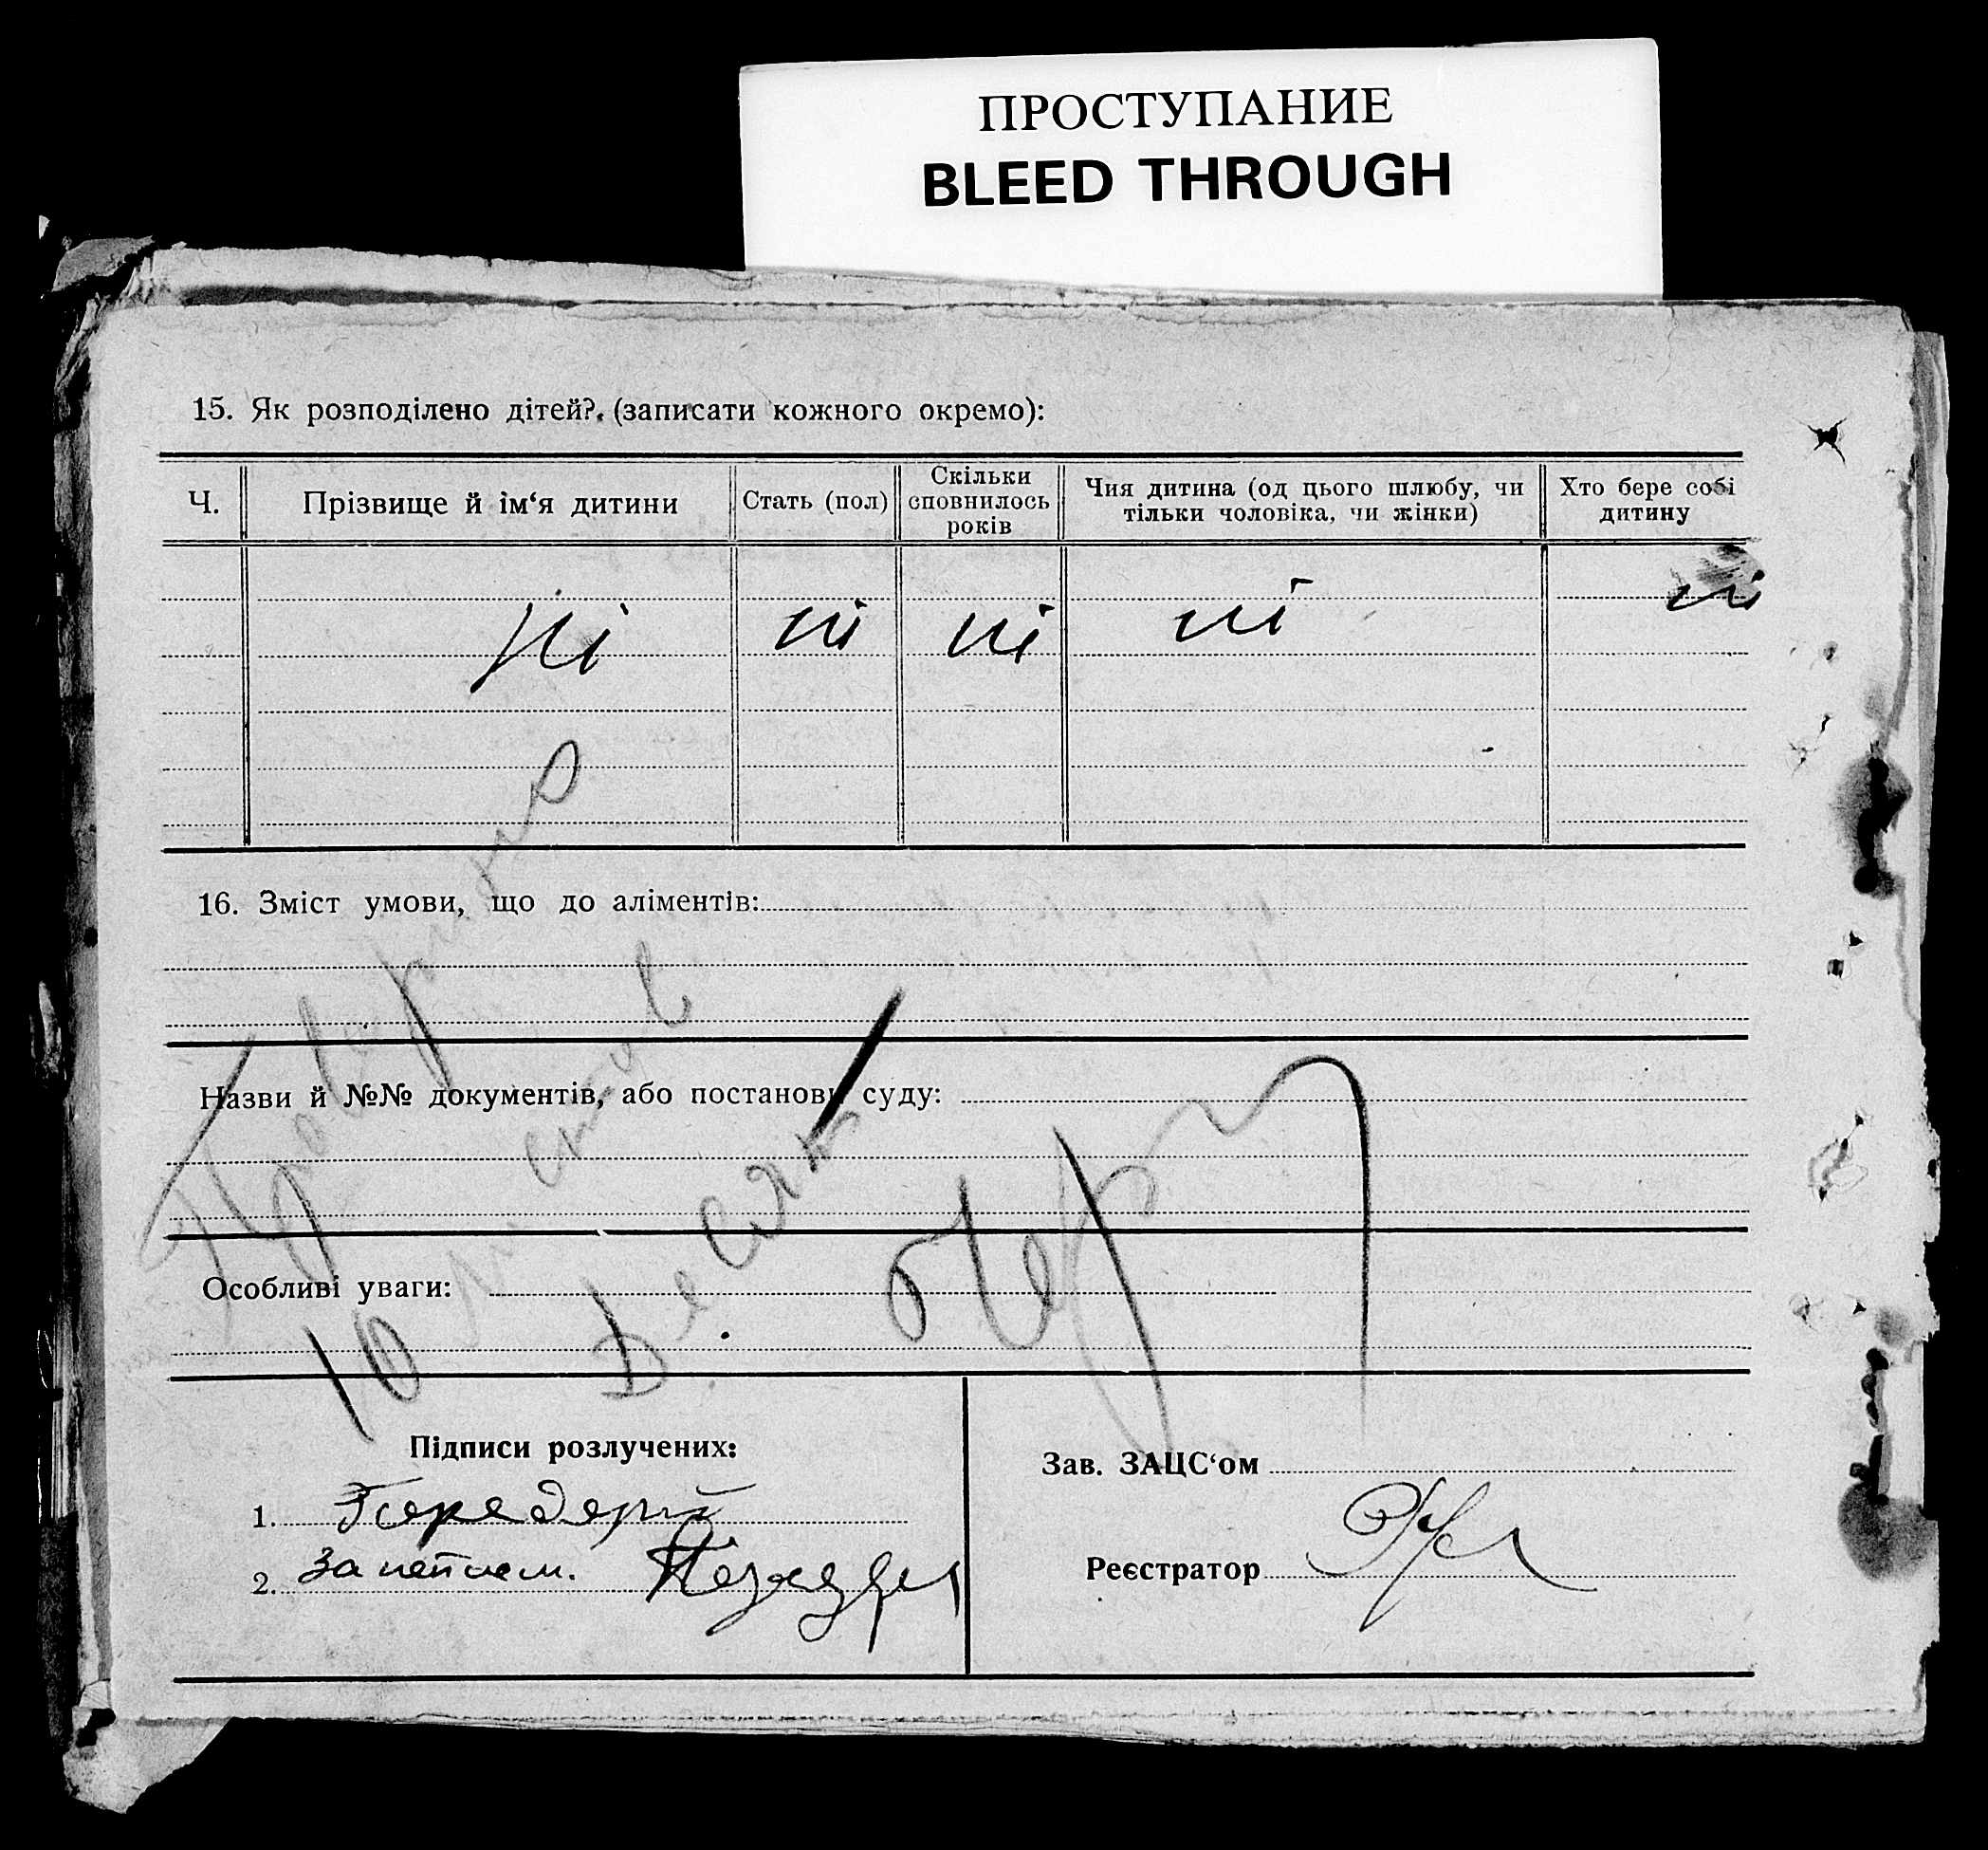 ПРОСТУПАНИЕ
BLEED THROUGH
15. Як розподілено дітей?. (записати кожного окремо):
Ч. Прізвище й ім‘я дитини Стать (пол) Скільки сповнилось років Чия дитина (од цього шлюбу, чи тільки чоловіка, чи жінки) Хто бере собі дитину
ні ні ні ні ні
16. Зміст умови, що до аліментів:
Назви й №№ документів, або постанови суду:
Особливі уваги:
10
Підписи розлучених:
1. Передерій
2. За
Зав. ЗАЦС‘ом
Реєстратор